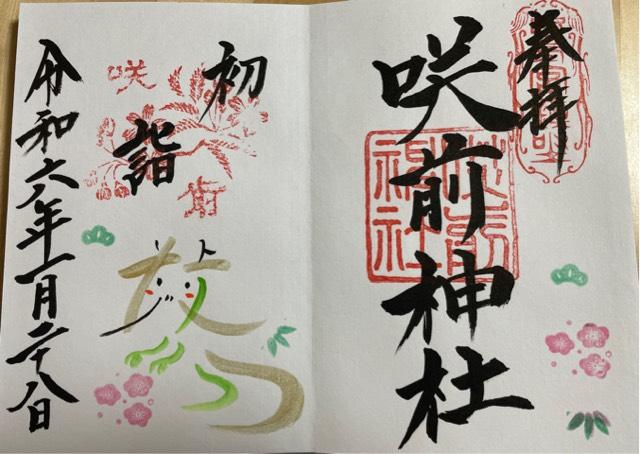 奉拝
咲前神社
咲前
神社
初
詣
咲
前
令和六年一月二十八日